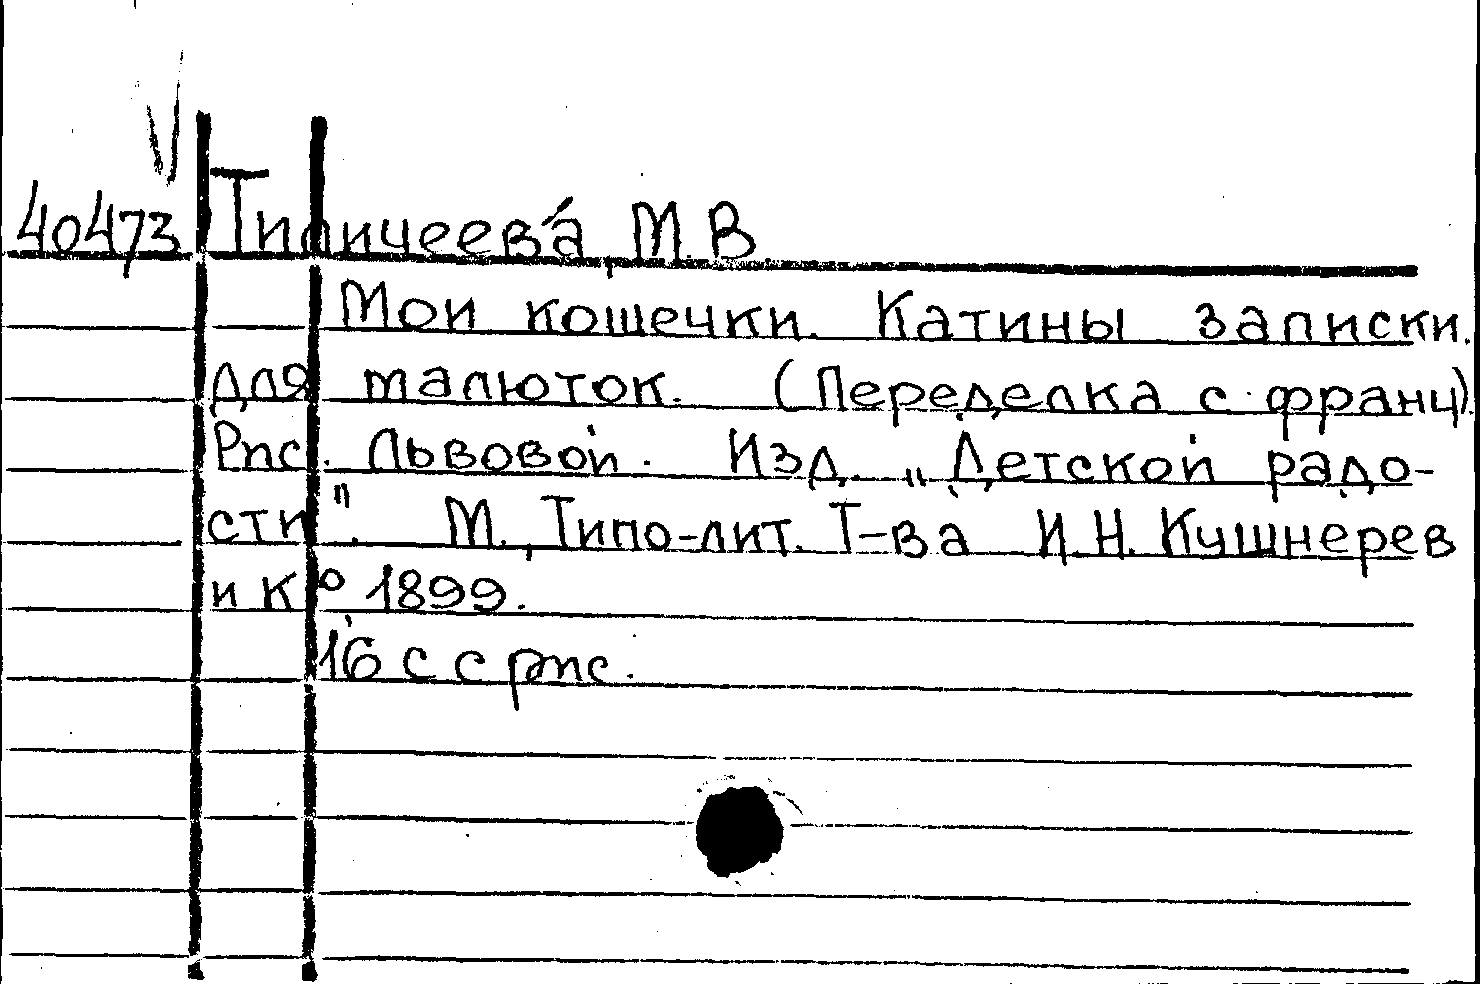 40473 Тиличеева, М. В
Мои кошечки. Катины записки.
для малюток. (Переделка с франц).
Рис. Львовой. Изд. „Детской радо-
сти". М., Типо-лит. Т-ва И.Н. Кушнерев
и К° 1899.
16 с с рис.